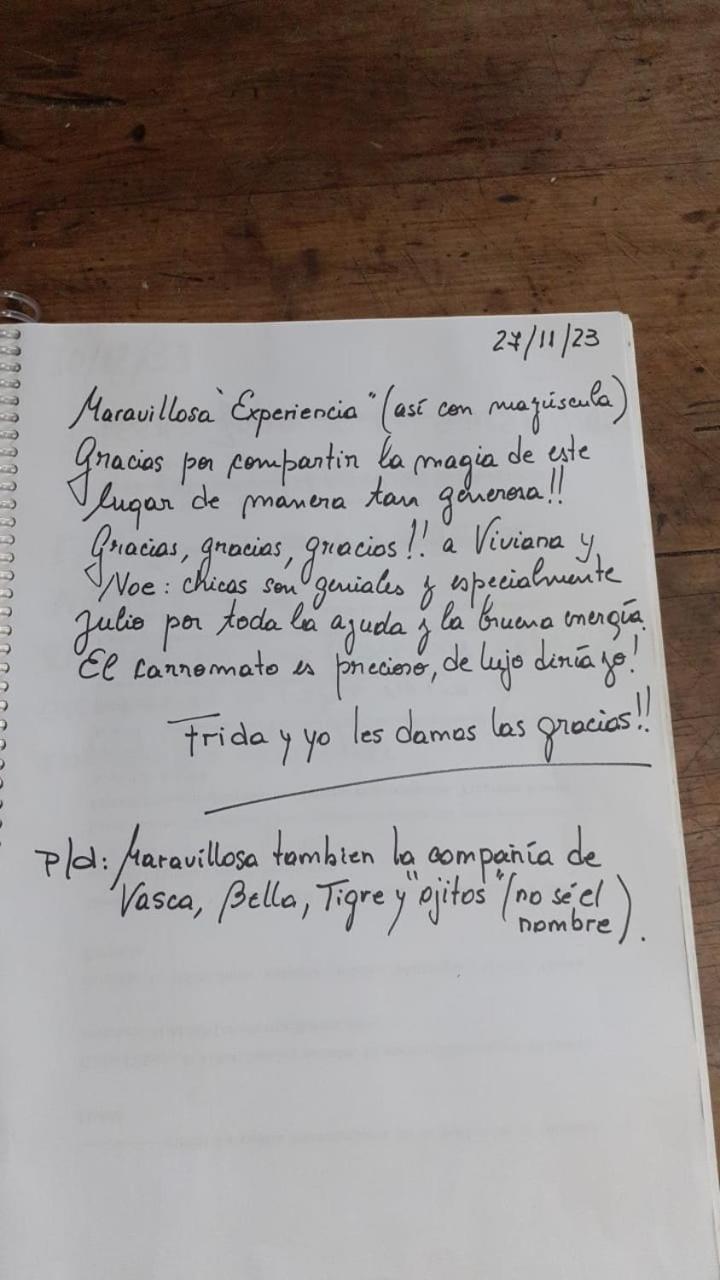 27/11/23
Maravillosa "Experiencia" (así con mayúscula)
Gracias por compartir la magia de este
lugar de manera tan generosa!!
Gracias, gracias, gracias!! a Viviana y
Noe: chicas son geniales y especialmente
Julio por toda la ayuda y la buena energía.
El carromato es precioso, de lujo diría yo!
Frida y yo les damos las gracias!!
p/d: Maravillosa tambien la compañía de
Vasca, Bella, Tigre y "ojitos" (no sé el
nombre).